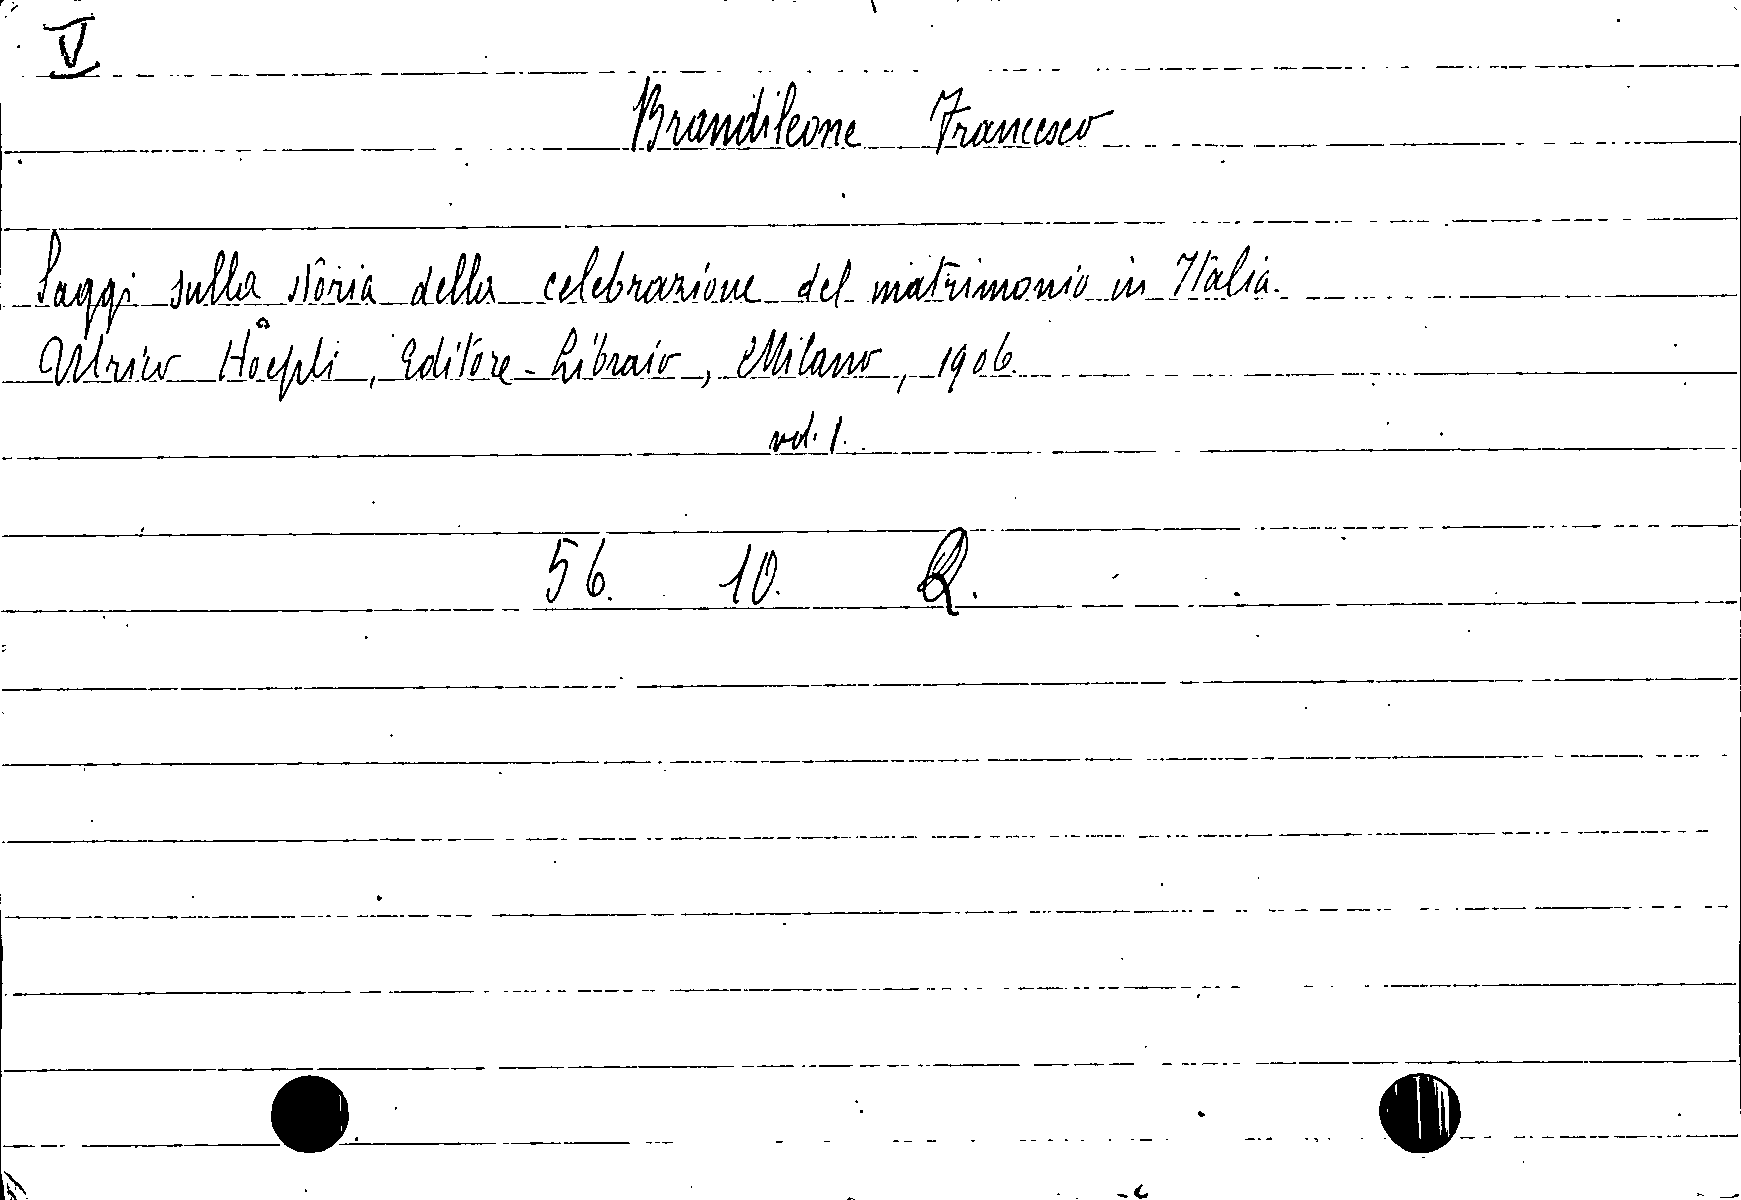 V
Brandileone Francesco
Saggi sulla storia della celebrazione del matrimonio in Italia.
Ulrico Hoepli, Editore-Libraio, Milano, 1906.
vol. 1.
56. 10. Q.